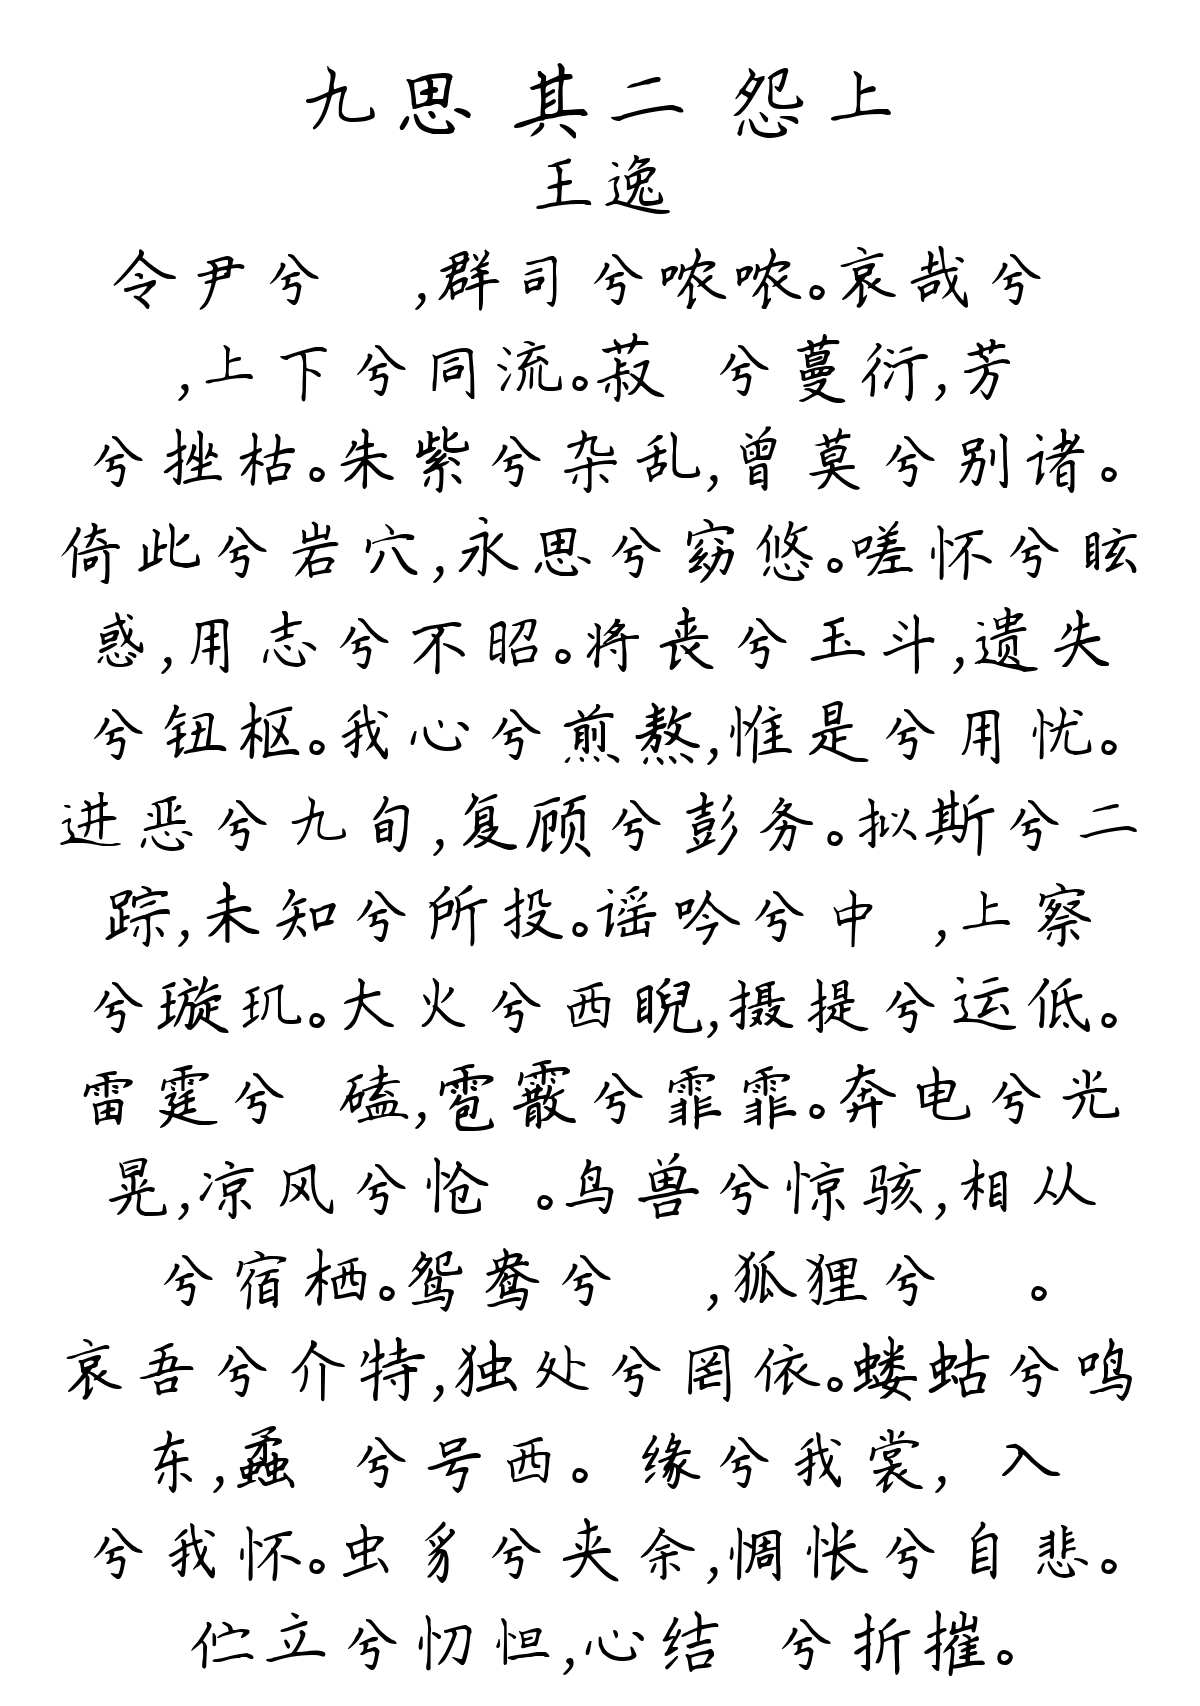 九思 其二 怨上
王逸
令尹兮 ,群司兮哝哝。哀哉兮
,上下兮同流。菽 兮蔓衍,芳
兮挫枯。朱紫兮杂乱,曾莫兮别诸。
倚此兮岩穴,永思兮窈悠。嗟怀兮眩
惑,用志兮不昭。将丧兮玉斗,遗失
兮钮枢。我心兮煎熬,惟是兮用忧。
进恶兮九旬,复顾兮彭务。拟斯兮二
踪,未知兮所投。谣吟兮中 ,上察
兮璇玑。大火兮西睨,摄提兮运低。
雷霆兮 磕,雹霰兮霏霏。奔电兮光
晃,凉风兮怆 。鸟兽兮惊骇,相从
兮宿栖。鸳鸯兮 ,狐狸兮 。
哀吾兮介特,独处兮罔依。蝼蛄兮鸣
东,蟊 兮号西。 缘兮我裳, 入
兮我怀。虫豸兮夹余,惆怅兮自悲。
伫立兮忉怛,心结 兮折摧。